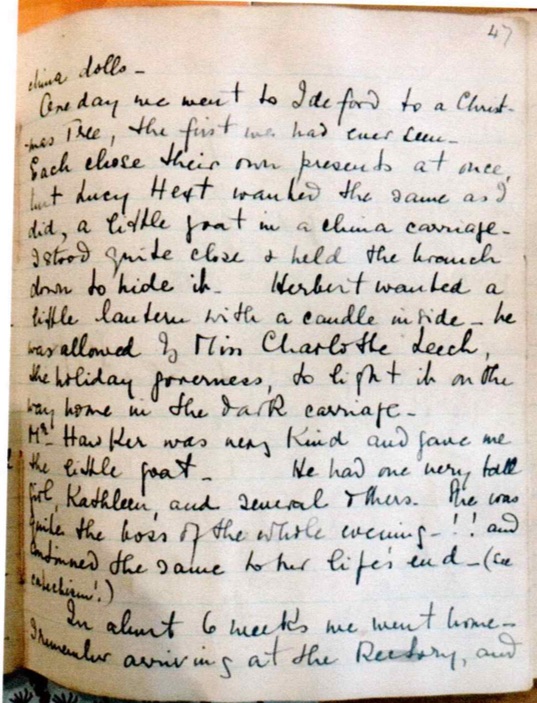 47
china dolls -
One day we went to Ideford to a Christ-
-mas Tree, the first we had ever seen -
Each chose their own presents at once,
but Lucy Hext wanted the same as I
did, a little goat in a china carriage -
I stood quite close & held the branch
down to hide it - Herbert wanted a
little lantern with a candle inside - he
was allowed by Miss Charlotte Leech,
the holiday governess, to light it on the
way home in the dark carriage -
Mr. Hawker was very kind and gave me
the little goat - He had one very tall
girl, Kathleen, and several others. She was
quite the boss of the whole evening - !! and
continued the same to her life's end - (see
catechism!)
In about 6 weeks we went home -
I remember arriving at the Rectory, and